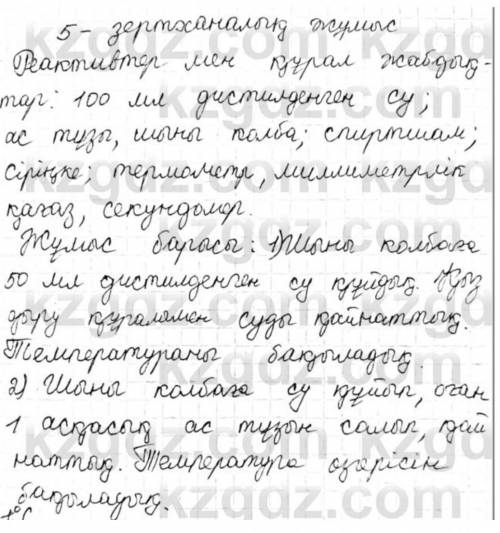 5- зертханалық жұмыс
Реактивтер мен құрал жабдық-
тар: 100 мл дистилденген су;
ас тұзы, шыны колба; спиртшам;
сіріңке; термометр, миллиметрлік
қағаз, секундомер.
Жұмыс барысы: 1) Шыны колбаға
50 мл дистилденген су құйдық. Қыз
дыру құралымен суды қайнаттық.
Температураны бақыладық.
2) Шыны колбаға су құйып, оған
1 асқасық ас тұзын салып, қай
наттық. Температура өзгерісін
бақыладық.
t°C